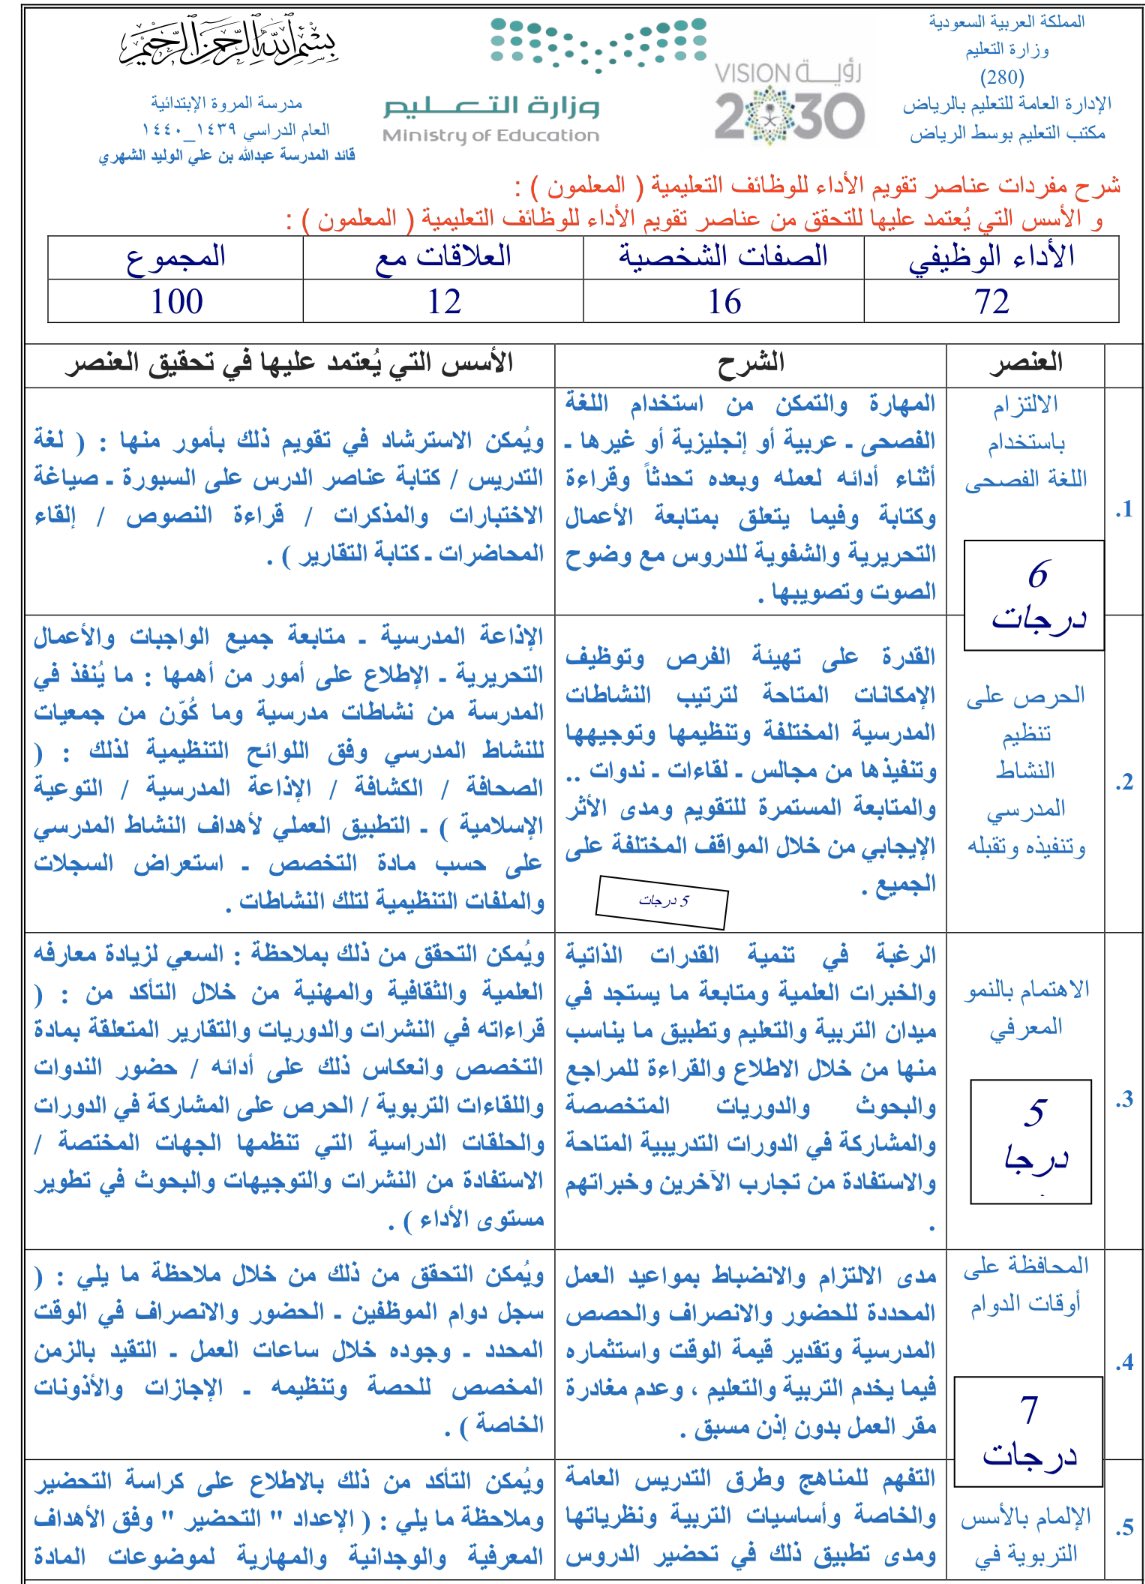 المملكة العربية السعودية
وزارة التعليم
(280)
الإدارة العامة للتعليم بالرياض
مكتب التعليم بوسط الرياض
رؤية VISION
2030
وزارة التعليم
Ministry of Education
بسم الله الرحمن الرحيم
مدرسة المروة الإبتدائية
العام الدراسي ١٤٣٩_١٤٤٠
قائد المدرسة عبدالله بن علي الوليد الشهري
شرح مفردات عناصر تقويم الأداء للوظائف التعليمية ( المعلمون ) :
و الأسس التي يُعتمد عليها للتحقق من عناصر تقويم الأداء للوظائف التعليمية ( المعلمون ) :
الأداء الوظيفي الصفات الشخصية العلاقات مع المجموع
72 16 12 100
العنصر الشرح الأسس التي يُعتمد عليها في تحقيق العنصر
1.
الالتزام
باستخدام
اللغة الفصحى
6
درجات
المهارة والتمكن من استخدام اللغة
الفصحى ـ عربية أو إنجليزية أو غيرها ـ
أثناء أدائه لعمله وبعده تحدثاً وقراءة
وكتابة وفيما يتعلق بمتابعة الأعمال
التحريرية والشفوية للدروس مع وضوح
الصوت وتصويبها .
ويُمكن الاسترشاد في تقويم ذلك بأمور منها : ( لغة
التدريس / كتابة عناصر الدرس على السبورة ـ صياغة
الاختبارات والمذكرات / قراءة النصوص / إلقاء
المحاضرات ـ كتابة التقارير ) .
2.
الحرص على
تنظيم
النشاط
المدرسي
وتنفيذه وتقبله
القدرة على تهيئة الفرص وتوظيف
الإمكانات المتاحة لترتيب النشاطات
المدرسية المختلفة وتنظيمها وتوجيهها
وتنفيذها من مجالس ـ لقاءات ـ ندوات ..
والمتابعة المستمرة للتقويم ومدى الأثر
الإيجابي من خلال المواقف المختلفة على
الجميع .
5 درجات
الإذاعة المدرسية ـ متابعة جميع الواجبات والأعمال
التحريرية ـ الإطلاع على أمور من أهمها : ما يُنفذ في
المدرسة من نشاطات مدرسية وما كُوّن من جمعيات
للنشاط المدرسي وفق اللوائح التنظيمية لذلك : (
الصحافة / الكشافة / الإذاعة المدرسية / التوعية
الإسلامية ) ـ التطبيق العملي لأهداف النشاط المدرسي
على حسب مادة التخصص ـ استعراض السجلات
والملفات التنظيمية لتلك النشاطات .
3.
الاهتمام بالنمو
المعرفي
5
درجا
الرغبة في تنمية القدرات الذاتية
والخبرات العلمية ومتابعة ما يستجد في
ميدان التربية والتعليم وتطبيق ما يناسب
منها من خلال الاطلاع والقراءة للمراجع
والبحوث والدوريات المتخصصة
والمشاركة في الدورات التدريبية المتاحة
والاستفادة من تجارب الآخرين وخبراتهم
.
ويُمكن التحقق من ذلك بملاحظة : السعي لزيادة معارفه
العلمية والثقافية والمهنية من خلال التأكد من : (
قراءاته في النشرات والدوريات والتقارير المتعلقة بمادة
التخصص وانعكاس ذلك على أدائه / حضور الندوات
واللقاءات التربوية / الحرص على المشاركة في الدورات
والحلقات الدراسية التي تنظمها الجهات المختصة /
الاستفادة من النشرات والتوجيهات والبحوث في تطوير
مستوى الأداء ) .
4.
المحافظة على
أوقات الدوام
7
درجات
مدى الالتزام والانضباط بمواعيد العمل
المحددة للحضور والانصراف والحصص
المدرسية وتقدير قيمة الوقت واستثماره
فيما يخدم التربية والتعليم ، وعدم مغادرة
مقر العمل بدون إذن مسبق .
ويُمكن التحقق من ذلك من خلال ملاحظة ما يلي : (
سجل دوام الموظفين ـ الحضور والانصراف في الوقت
المحدد ـ وجوده خلال ساعات العمل ـ التقيد بالزمن
المخصص للحصة وتنظيمه ـ الإجازات والأذونات
الخاصة ) .
5.
الإلمام بالأسس
التربوية في
التفهم للمناهج وطرق التدريس العامة
والخاصة وأساسيات التربية ونظرياتها
ومدى تطبيق ذلك في تحضير الدروس
ويُمكن التأكد من ذلك بالاطلاع على كراسة التحضير
وملاحظة ما يلي : ( الإعداد " التحضير " وفق الأهداف
المعرفية والوجدانية والمهارية لموضوعات المادة